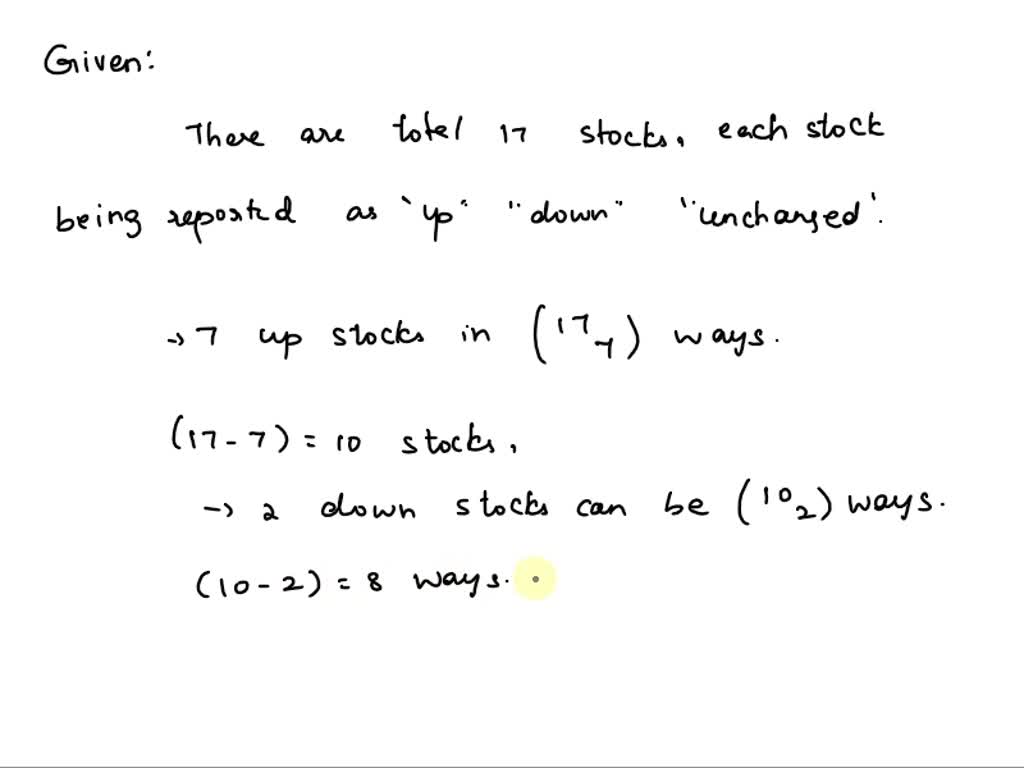 Given:
There are total 17 stocks, each stock
being reported as "up" "down" "unchanged".
→ 7 up stocks in (17 7) ways.
(17 - 7) = 10 stocks,
→ 2 down stocks can be (10 2) ways.
(10 - 2) = 8 ways.